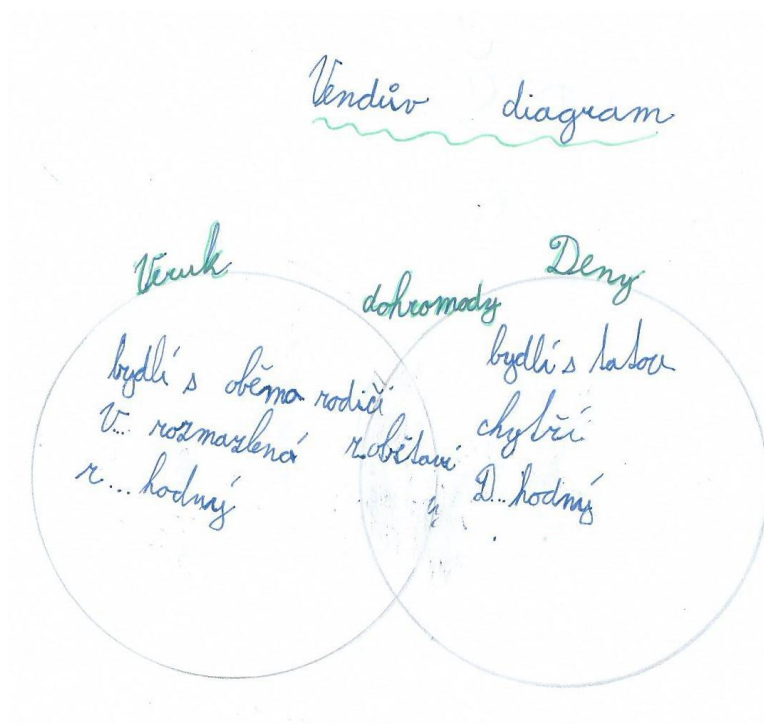 Vendův diagram
Veruk
dohromady
Deny
bydlí s oběma rodiči
V... rozmazlená
r... hodný
r.obětaví
bydlí s tatou
chytří
D... hodný